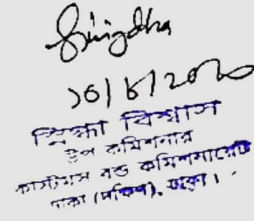 Snigdha
১০/৮/২০২০
স্নিগ্ধা বিশ্বাস
উপ কমিশনার
কাস্টমস বন্ড কমিশনারেট
ঢাকা (দক্ষিণ), ঢাকা।